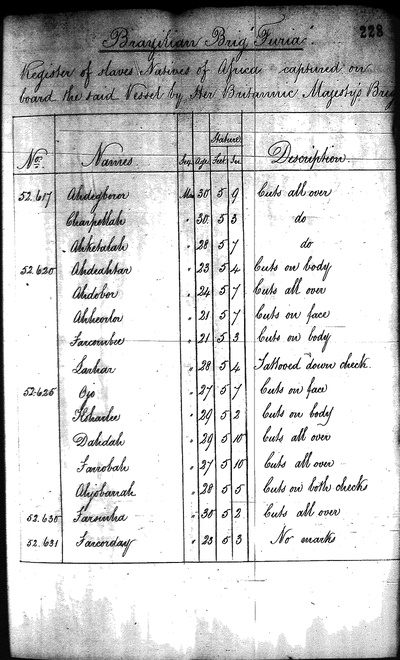 228
Brazilian Brig "Furia".
Register of slaves Natives of Africa captured on
board the said Vessel by Her Britannic Majesty's Brig
Stature
No. Names Sex Age Feet In. Description.
52.617 Ahdegboror Man 30 5 9 Cuts all over
Charpollah " 30 5 3 do
Ahketalah " 28 5 7 do
52.620 Ahdeahtar " 23 5 4 Cuts on body
Ahdobor " 24 5 7 Cuts all over
" 21 5 7 Cuts on face
Farcombee " 21 5 3 Cuts on body
Sarhar " 28 5 4 Tattooed down cheek.
52.625 Ojo " 27 5 7 Cuts on face
" 29 5 2 Cuts on body
Dahdah " 29 5 10 Cuts all over
Farrobah " 27 5 10 Cuts all over
Ahjobarrah " 28 5 5 Cuts on both cheeks
52.630 Farsinha " 30 5 2 Cuts all over
52.631 Farcorday " 23 5 3 No marks